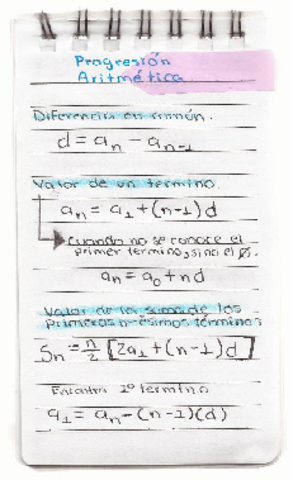 Progresión
Aritmética
Diferencia en común.
d = aₙ − aₙ₋₁
Valor de un término.
aₙ = a₁ + (n−1)d
Cuando no se conoce el
primer término, sino el 0.
aₙ = a₀ + nd
Valor de la suma de los
primeros n-ésimos términos
Sₙ = n/2 [2a₁ + (n−1)d]
Encontrar 1º término
a₁ = aₙ − (n−1)(d)